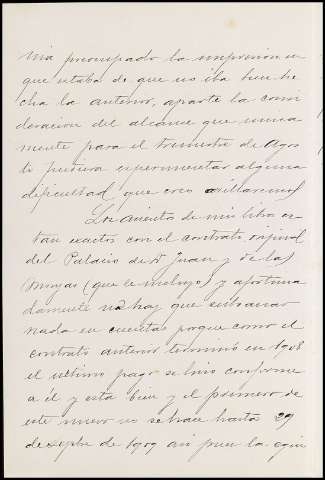 nia preocupado la impresion en
que estaba de que no iba bien he
cha la anterior, aparte la consi
deracion del alcance que unica
mente para el trimestre de Agos
to pudiera experimentar alguna
dificultad que creo orillaremos
Los asientos de mis libros es
tan exactos con el contrato original
del Palacio de Dn Juan y de las
Monjas (que le incluyo) y afortuna
damente no hay que subsanar
nada en cuentas porque como el
contrato anterior terminó en 1908
el ultimo pago se hizo conforme
a él y esta bien y el primero de
este nuevo no se hace hasta 29
de Sepbre de 1909 asi pues la equi